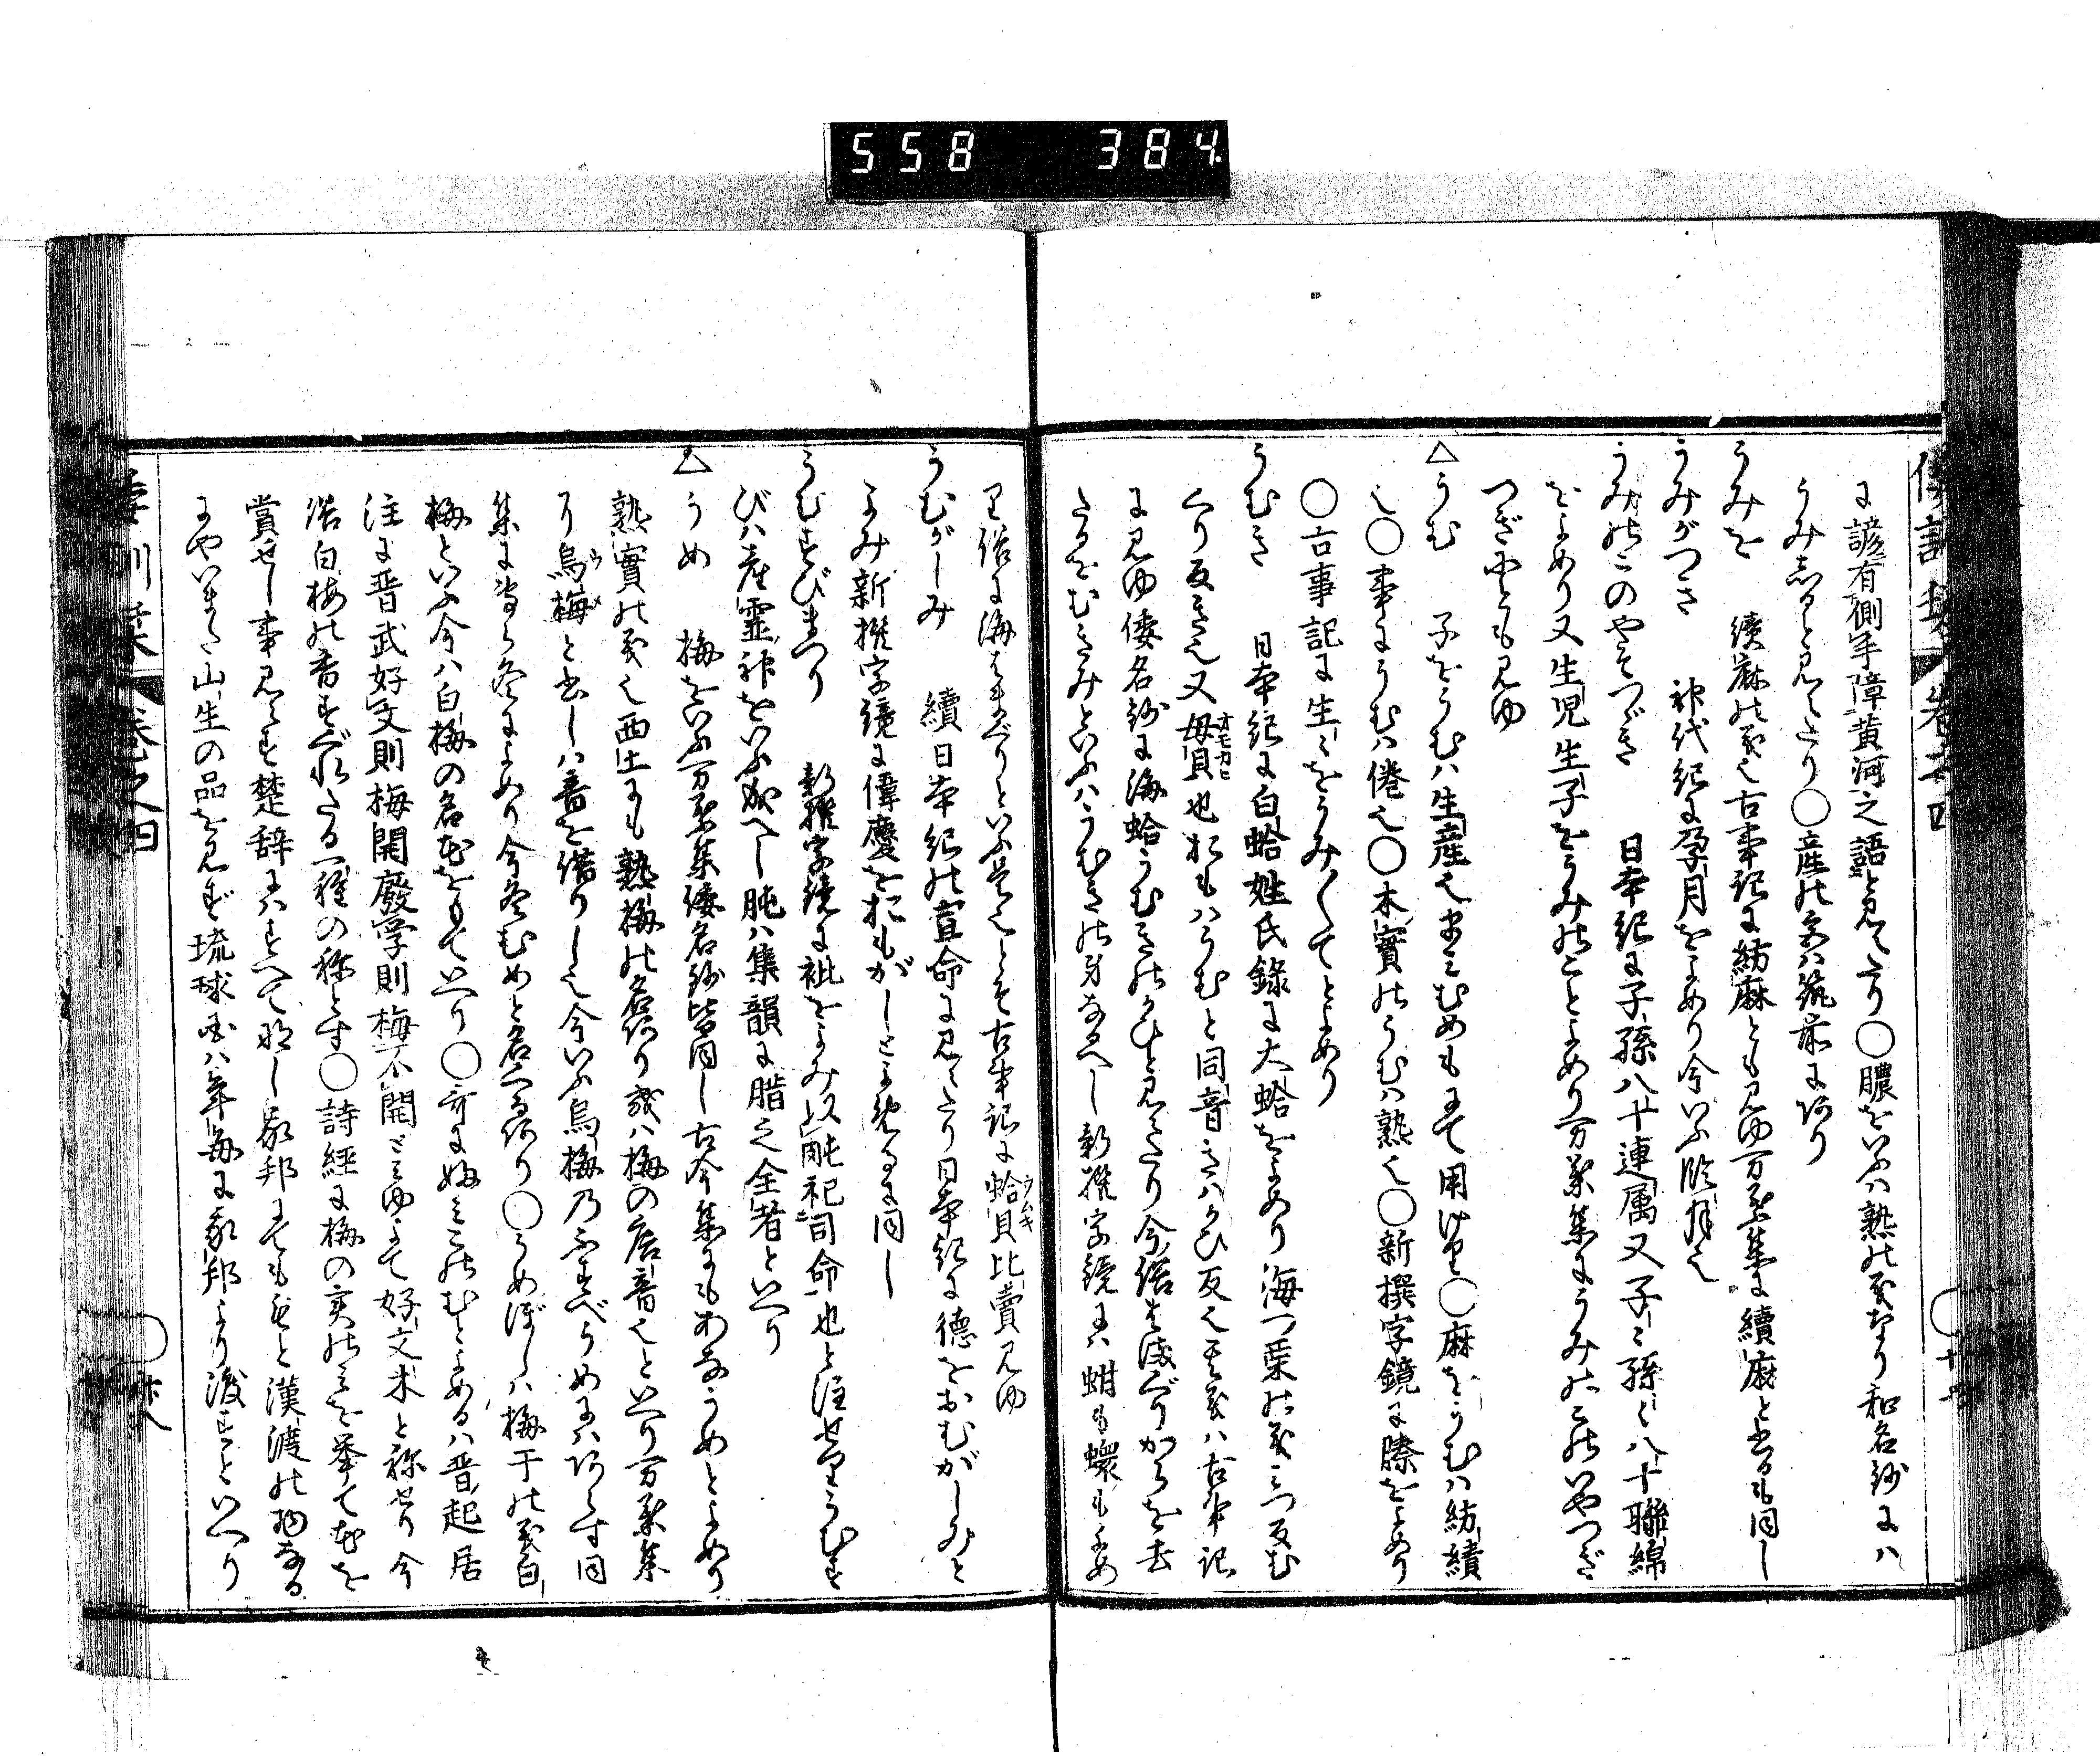 558 384
に諺有側手障黄河之語と見えたり○膿をいふハ熟の義なり和名鈔にハ
うみしると見えたり○産の宮ハ筑前にあり
うみを 績麻の義也古事記に紡麻とも見ゆ万葉集に續麻と書るも同し
うみがつき 神代紀に孕月をよめり今いふ臨月也
うみのこのやそつゞき 日本紀に子孫八十連属又子々孫々八十聯綿
をよめり又生児生子をうみのことよめり万葉集にうみのこのいやつぎ
つぎなとも見ゆ
△うむ 子をうむハ生産也すゝむめもにて用けり○麻をうむハ紡績
也○事にうむハ倦也○木實のうむハ熟也○新撰字鏡に縢をよめり
○古事記に生々をうみ〳〵てとよめり
うむき 日本紀に白蛤姓氏録に大蛤をよめり海つ栗の義みつ反む
くり反き也又母貝也おもハうむと同音きハかひ反也其義ハ古事記
に見ゆ倭名鈔に海蛤うむきのかひと見えたり今俗はまぐりからを去
たるをむきみといふハうむきの身なるへし新撰字鏡にハ蚶も蠏もよめ
り俗に海はまぐりといふ是也とそ古事記に蛤貝比賣見ゆ
うむがしみ 續日本紀の宣命に見えたり日本紀に徳をおむがしみと
よみ新撰字鏡に偉慶をおもがしとよめるに同し
うむすびまつり 新撰字鏡に祉をよみ以豚祀司命也と注せりうむす
びハ産霊神をいふ成へし肫ハ集韻に腊之全者といへり
△うめ 梅をいふ万葉集倭名鈔皆同し古今集にもあなうめとよめり
熟實の義也西土にも熟梅の名あり或ハ梅の唐音也といへり万葉集
に烏梅と書しハ音を借りし也今いふ烏梅乃ふすべうめにハあらす同
集に春も冬によめり今冬むめと名つるあり○うめぼしハ梅干の義白
梅といふ今ハ白梅の名花をもていへり○奇に好文木のむとよめるハ晋起居
注に晋武好文則梅開廢学則梅不開とみゆよて好文木と称せり今
俗白梅の香すぐれたる一種の称とす○詩経に梅の実のみを挙て花を
賞せし事見えす楚辞にハすへてなし我邦にてももと漢渡の物なる
にやいまた山生の品を見ず琉球国ハ年毎に我邦より渡すといへり